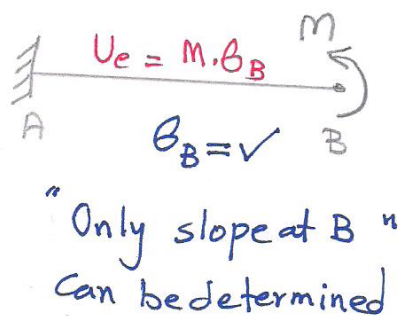 M
Ue = M.θB
A
B
θB=✓
"Only slope at B"
can be determined